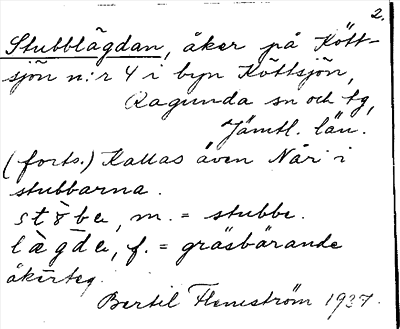 2.
Stubblägdan, åker på Kött-
sjön n:r 4 i byn Köttsjön,
Ragunda sn och tg,
Jämtl. län.
(forts.) Kallas även När i
stubbarna.
stòba, m. = stubbe.
lægda, f. = gräsbärande
åkerteg.
Bertil Flemström 1937.